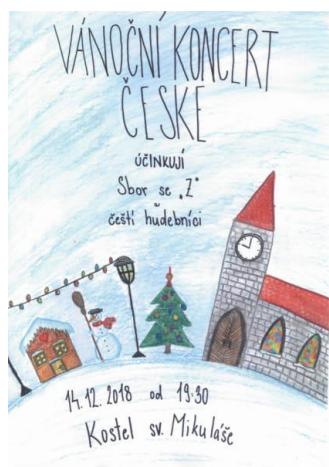 VÁNOČNÍ KONCERT
ČESKE
ÚČINKUJÍ
Sbor se "Z"
čeští hudebníci
14.12.2018 od 19:30
Kostel sv. Mikuláše